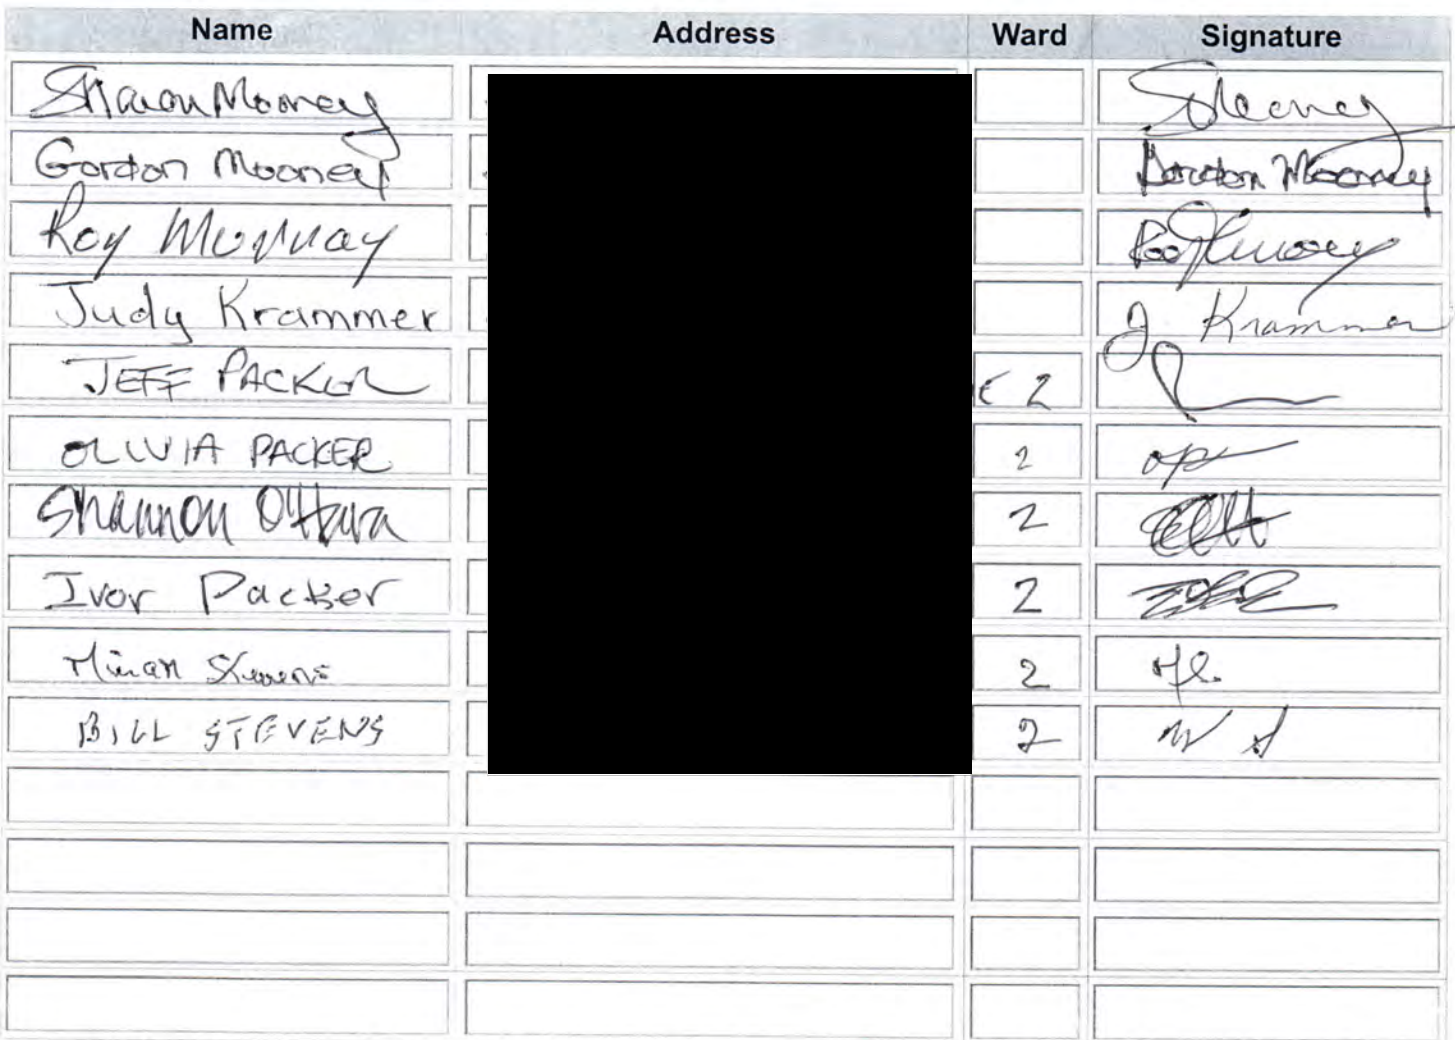 Name Address Ward Signature
Sharon Mooney
Gordon Mooney Gordon Mooney
Roy
Judy Krammer J Krammer
JEFF PACKER 2
OLIVIA PACKER 2 op
Shannon O'Hara 2
Ivor Packer 2
Stevens 2
BILL STEVENS 2 W S